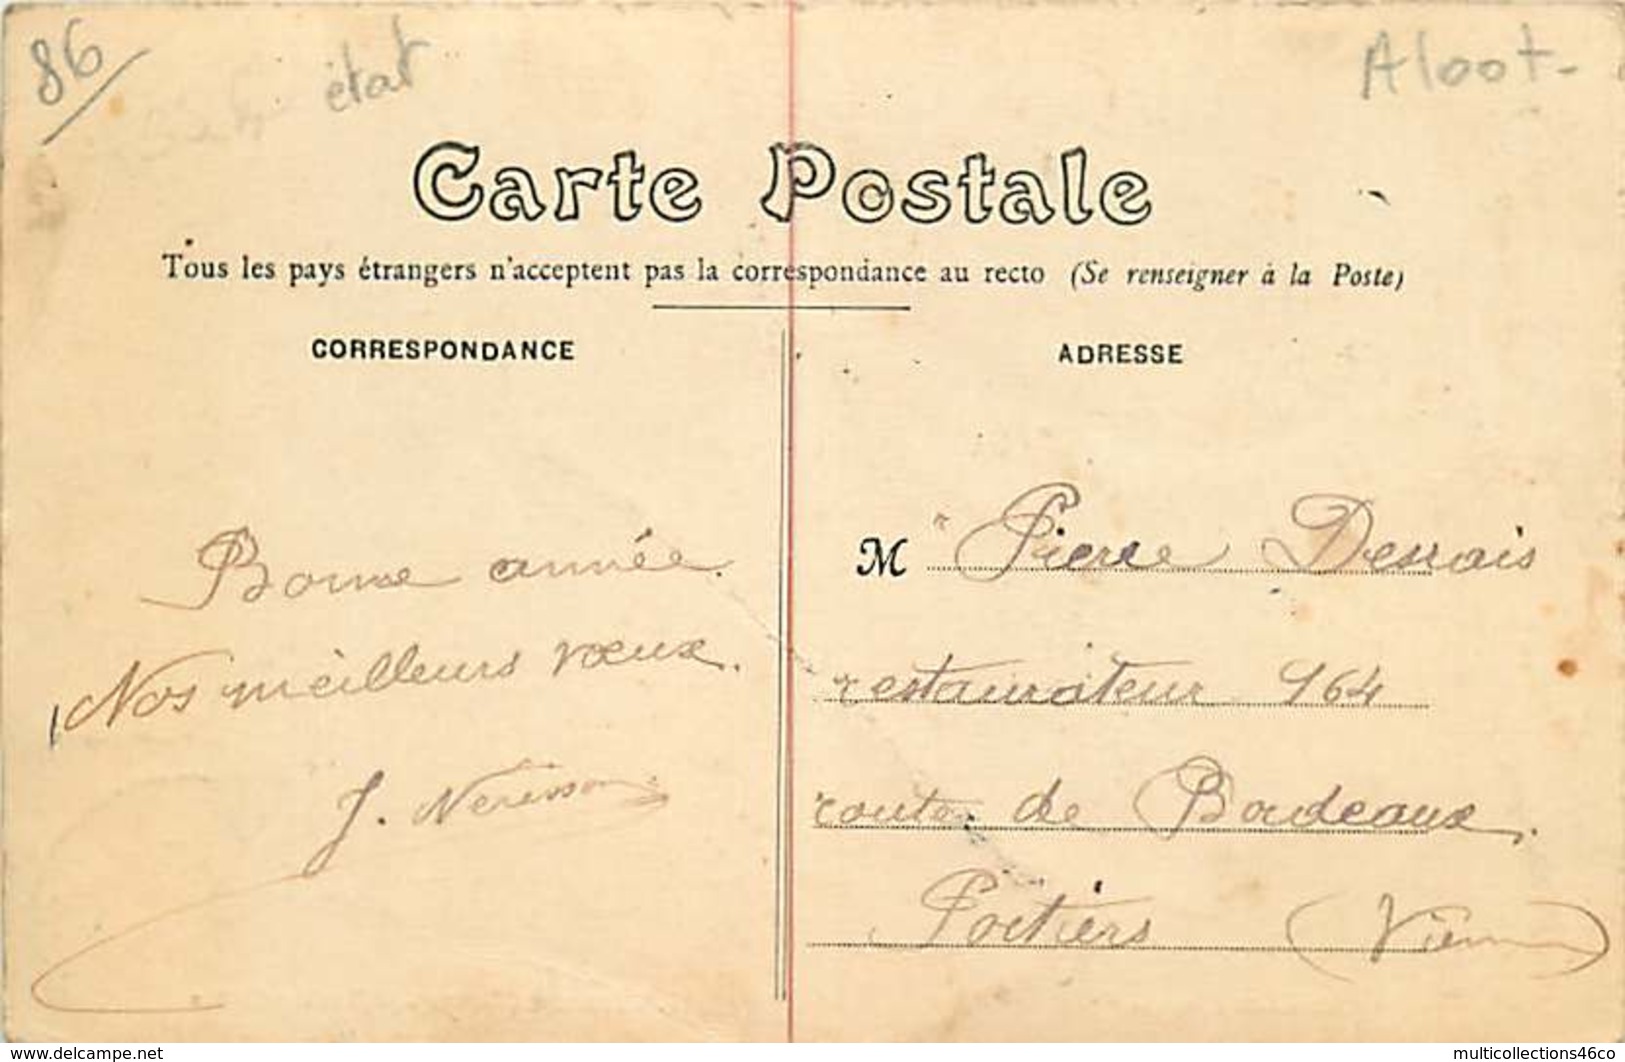 86
état
Carte Postale
Tous les pays étrangers n'acceptent pas la correspondance au recto (Se renseigner à la Poste)
CORRESPONDANCE
ADRESSE
Bonne année.
Nos meilleurs vœux.
J.
M Pierre
restaurateur 164
route de Bordeaux.
Poitiers (Vienne)
www.delcampe.net
multicollections46co